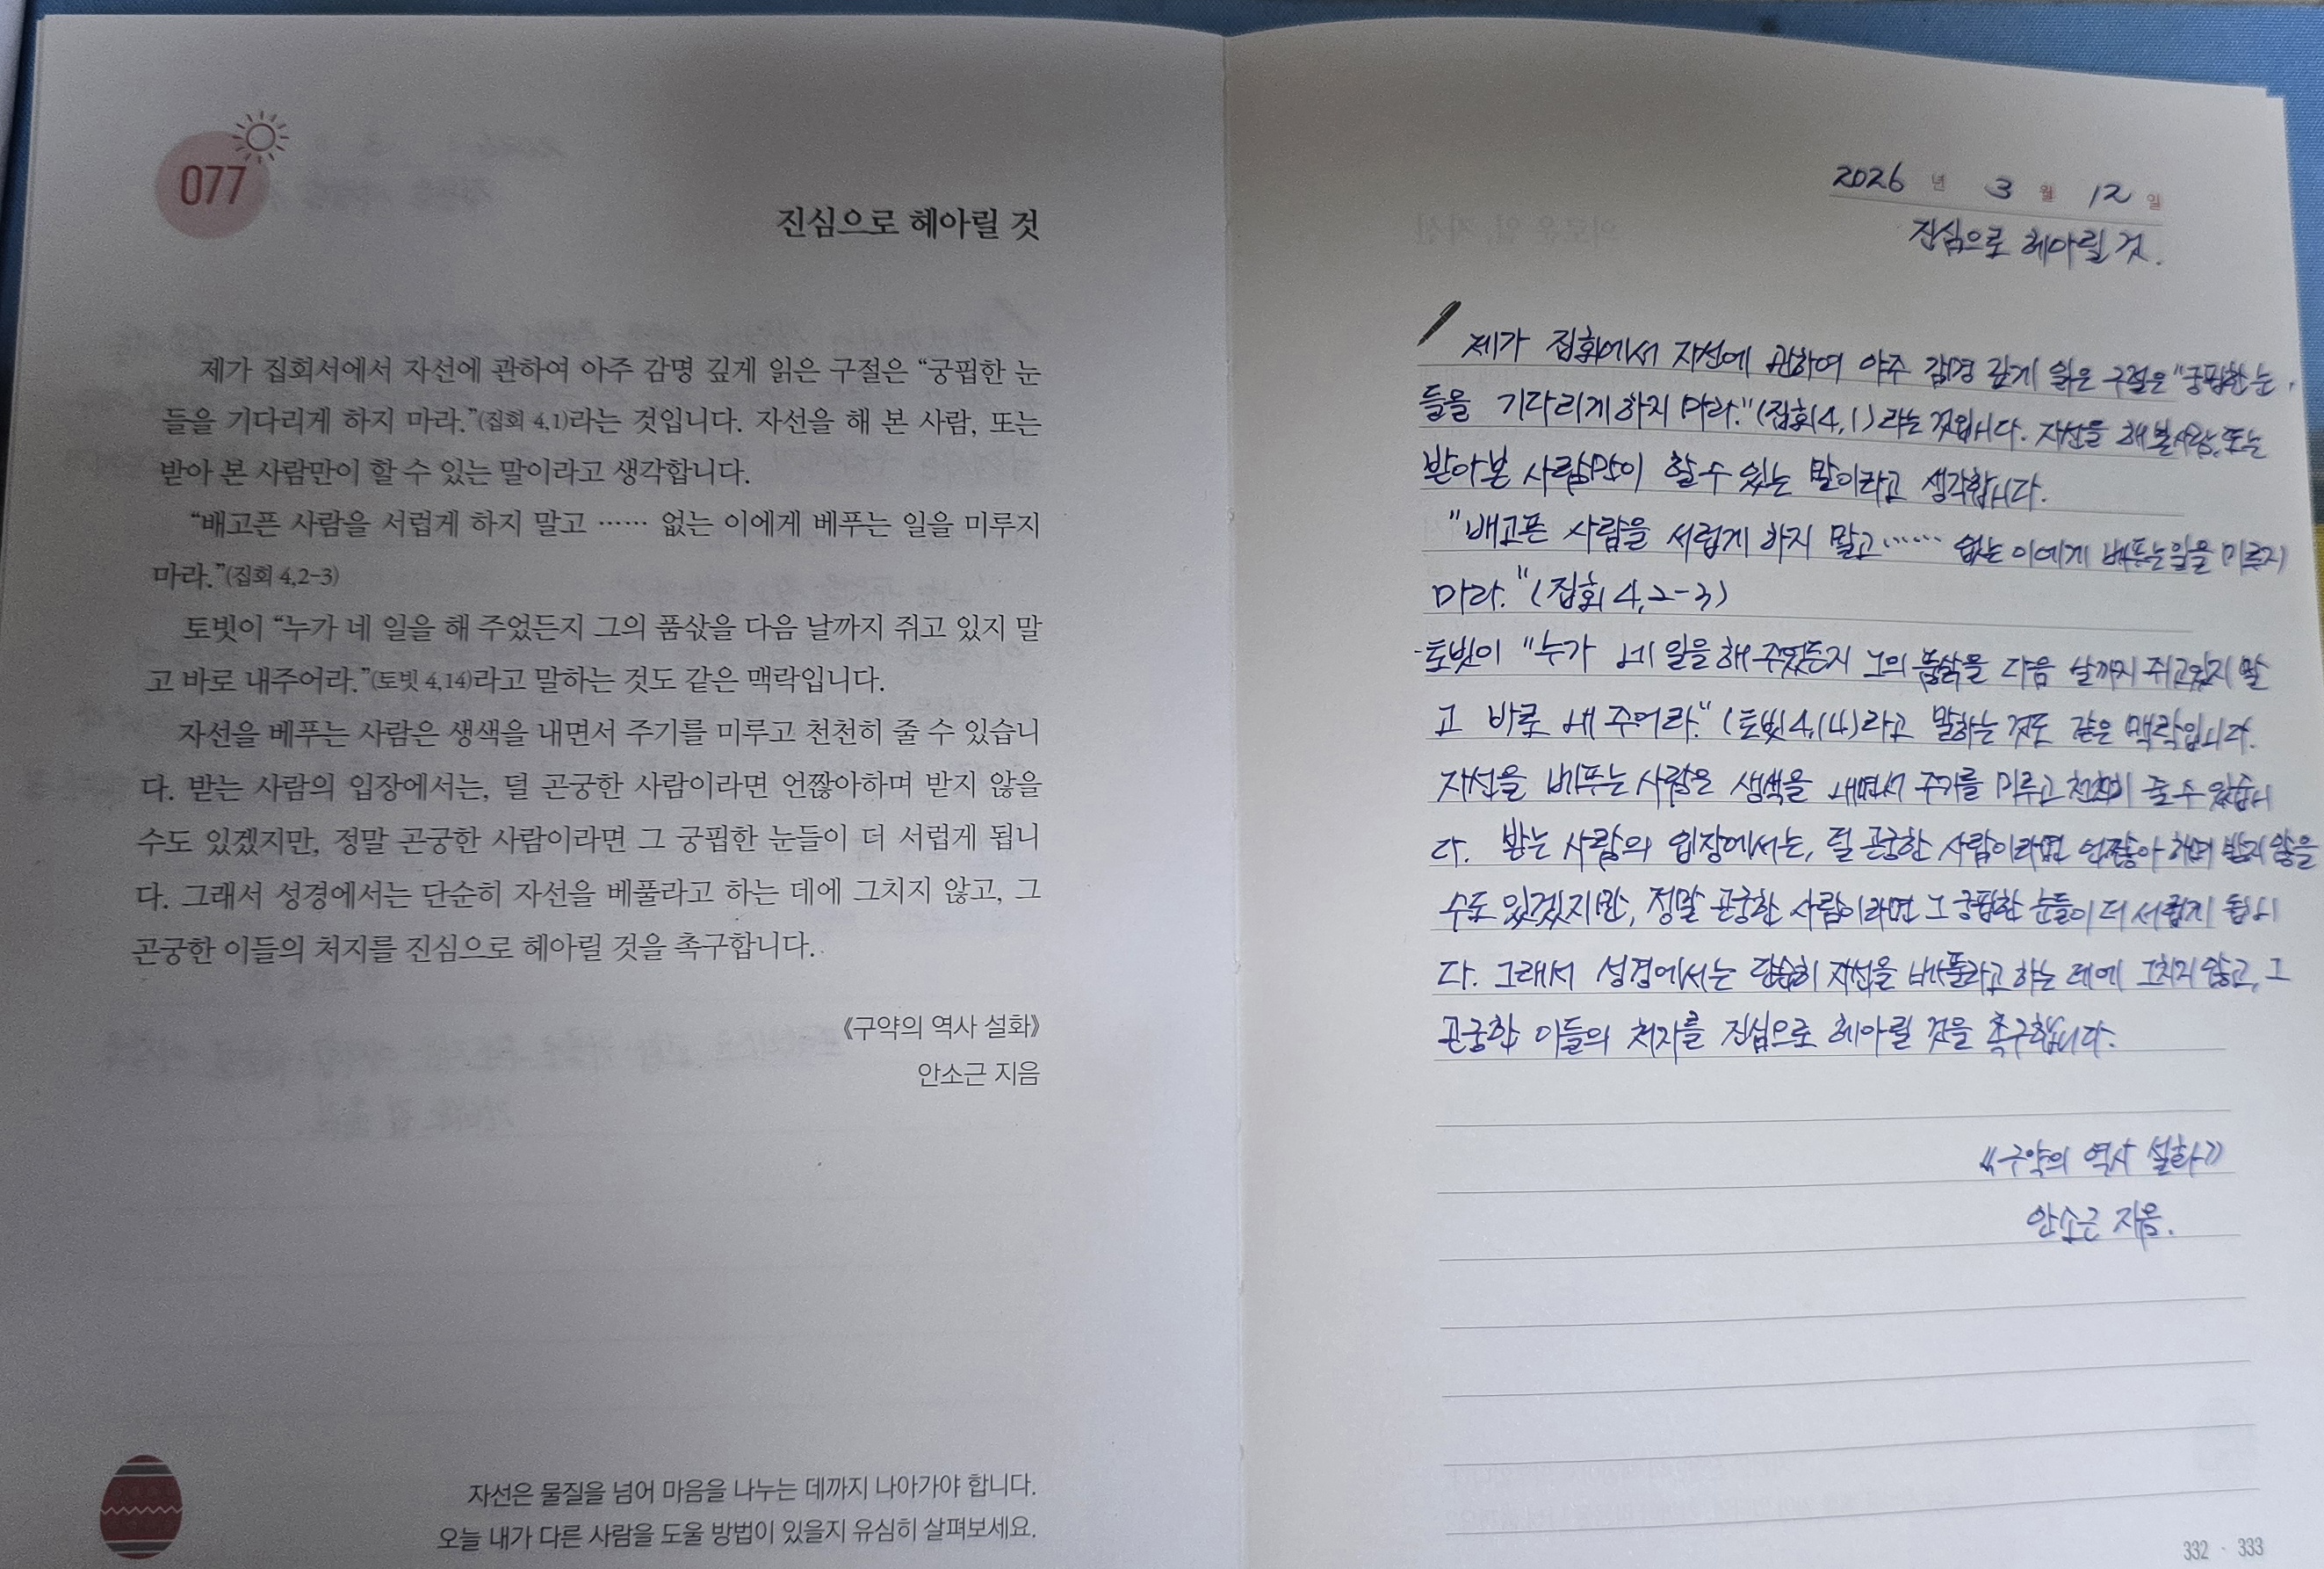 077
진심으로 헤아릴 것
제가 집회서에서 자선에 관하여 아주 감명 깊게 읽은 구절은 “궁핍한 눈
들을 기다리게 하지 마라.”(집회 4,1)라는 것입니다. 자선을 해 본 사람, 또는
받아 본 사람만이 할 수 있는 말이라고 생각합니다.
“배고픈 사람을 서럽게 하지 말고 …… 없는 이에게 베푸는 일을 미루지
마라.”(집회 4,2-3)
토빗이 “누가 네 일을 해 주었든지 그의 품삯을 다음 날까지 쥐고 있지 말
고 바로 내주어라.”(토빗 4,14)라고 말하는 것도 같은 맥락입니다.
자선을 베푸는 사람은 생색을 내면서 주기를 미루고 천천히 줄 수 있습니
다. 받는 사람의 입장에서는, 덜 곤궁한 사람이라면 언짢아하며 받지 않을
수도 있겠지만, 정말 곤궁한 사람이라면 그 궁핍한 눈들이 더 서럽게 됩니
다. 그래서 성경에서는 단순히 자선을 베풀라고 하는 데에 그치지 않고, 그
곤궁한 이들의 처지를 진심으로 헤아릴 것을 촉구합니다.
《구약의 역사 설화》
안소근 지음
자선은 물질을 넘어 마음을 나누는 데까지 나아가야 합니다.
오늘 내가 다른 사람을 도울 방법이 있을지 유심히 살펴보세요.
2026 년 3 월 12 일
진심으로 헤아릴 것.
제가 집회에서 자선에 관하여 아주 감명 깊게 읽은 구절은 "궁핍한 눈
들을 기다리게 하지 마라."(집회 4,1)라는 것입니다. 자선을 해 본 사람, 또는
받아 본 사람만이 할 수 있는 말이라고 생각합니다.
"배고픈 사람을 서럽게 하지 말고 …… 없는 이에게 베푸는 일을 미루지
마라."(집회 4,2-3)
토빗이 "누가 네 일을 해 주었든지 그의 품삯을 다음 날까지 쥐고 있지 말
고 바로 내 주어라."(토빗 4,14)라고 말하는 것도 같은 맥락입니다.
자선을 베푸는 사람은 생색을 내면서 주기를 미루고 천천히 줄 수 있습니
다. 받는 사람의 입장에서는, 덜 곤궁한 사람이라면 언짢아 하며 받지 않을
수도 있겠지만, 정말 곤궁한 사람이라면 그 궁핍한 눈들이 더 서럽게 됩니
다. 그래서 성경에서는 단순히 자선을 베풀라고 하는 데에 그치지 않고, 그
곤궁한 이들의 처지를 진심으로 헤아릴 것을 촉구합니다.
《구약의 역사 설화》
안소근 지음.
332 · 333